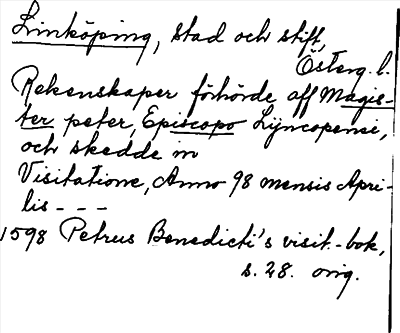 Linköping, stad och stift,
Österg. l.
Rekenskaper förhörde aff Magis-
ter peter, Episcopo Lyncopensi,
och skedde in
Visitatione, Anno 98 mensis Apri-
lis - - -
1598 Petrus Benedicti's visit.-bok,
s. 28. orig.